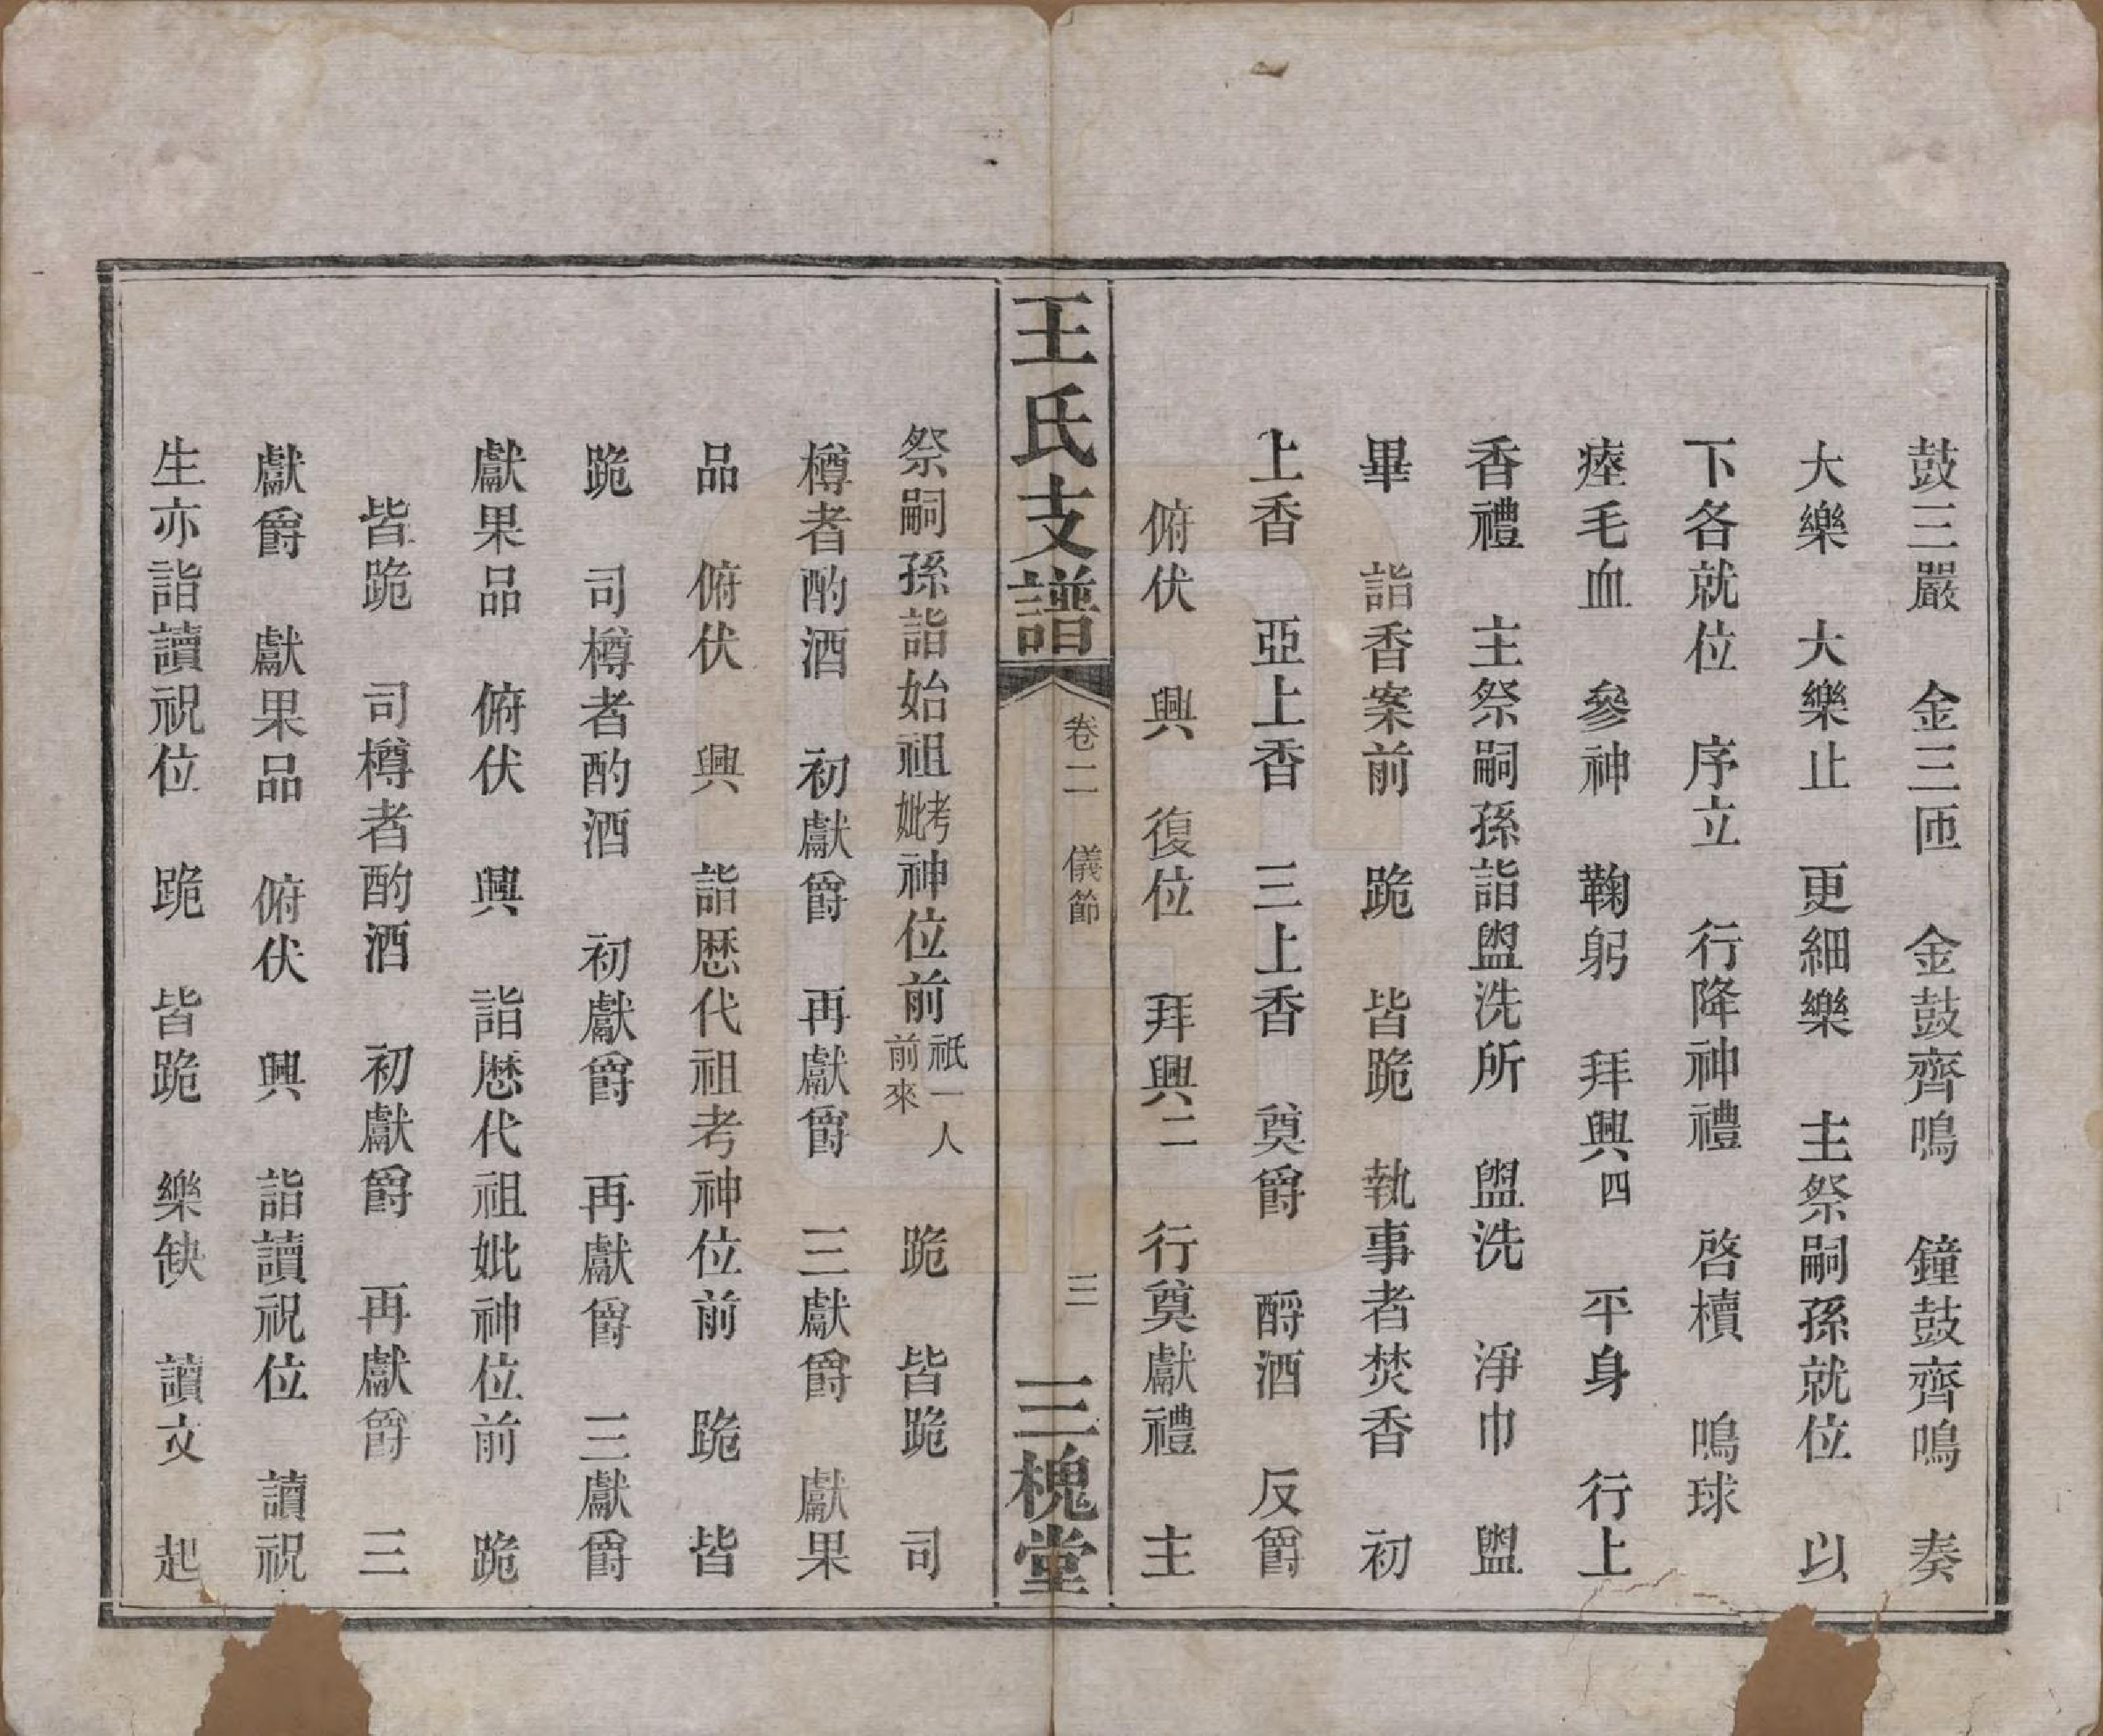 鼓三嚴　金三匝　金鼓齊鳴　鐘鼓齊鳴　奏
大樂　大樂止　更細樂　主祭嗣孫就位　以
下各就位　序立　行降神禮　啓櫝　鳴球
瘞毛血　參神　鞠躬　拜興四　平身　行上
香禮　主祭嗣孫詣盥洗所　盥洗　淨巾　盥
畢　詣香案前　跪　皆跪　執事者焚香　初
上香　亞上香　三上香　奠爵　酹酒　反爵
俯伏　興　復位　拜興二　行奠獻禮　主
王氏支譜　卷二　儀節　三　三槐堂
祭嗣孫詣始祖考妣神位前祇一人前來　跪　皆跪　司
樽者酌酒　初獻爵　再獻爵　三獻爵　獻果
品　俯伏　興　詣歷代祖考神位前　跪　皆
跪　司樽者酌酒　初獻爵　再獻爵　三獻爵
獻果品　俯伏　興　詣歷代祖妣神位前　跪
皆跪　司樽者酌酒　初獻爵　再獻爵　三
獻爵　獻果品　俯伏　興　詣讀祝位　讀祝
生亦詣讀祝位　跪　皆跪　樂缺　讀文　起